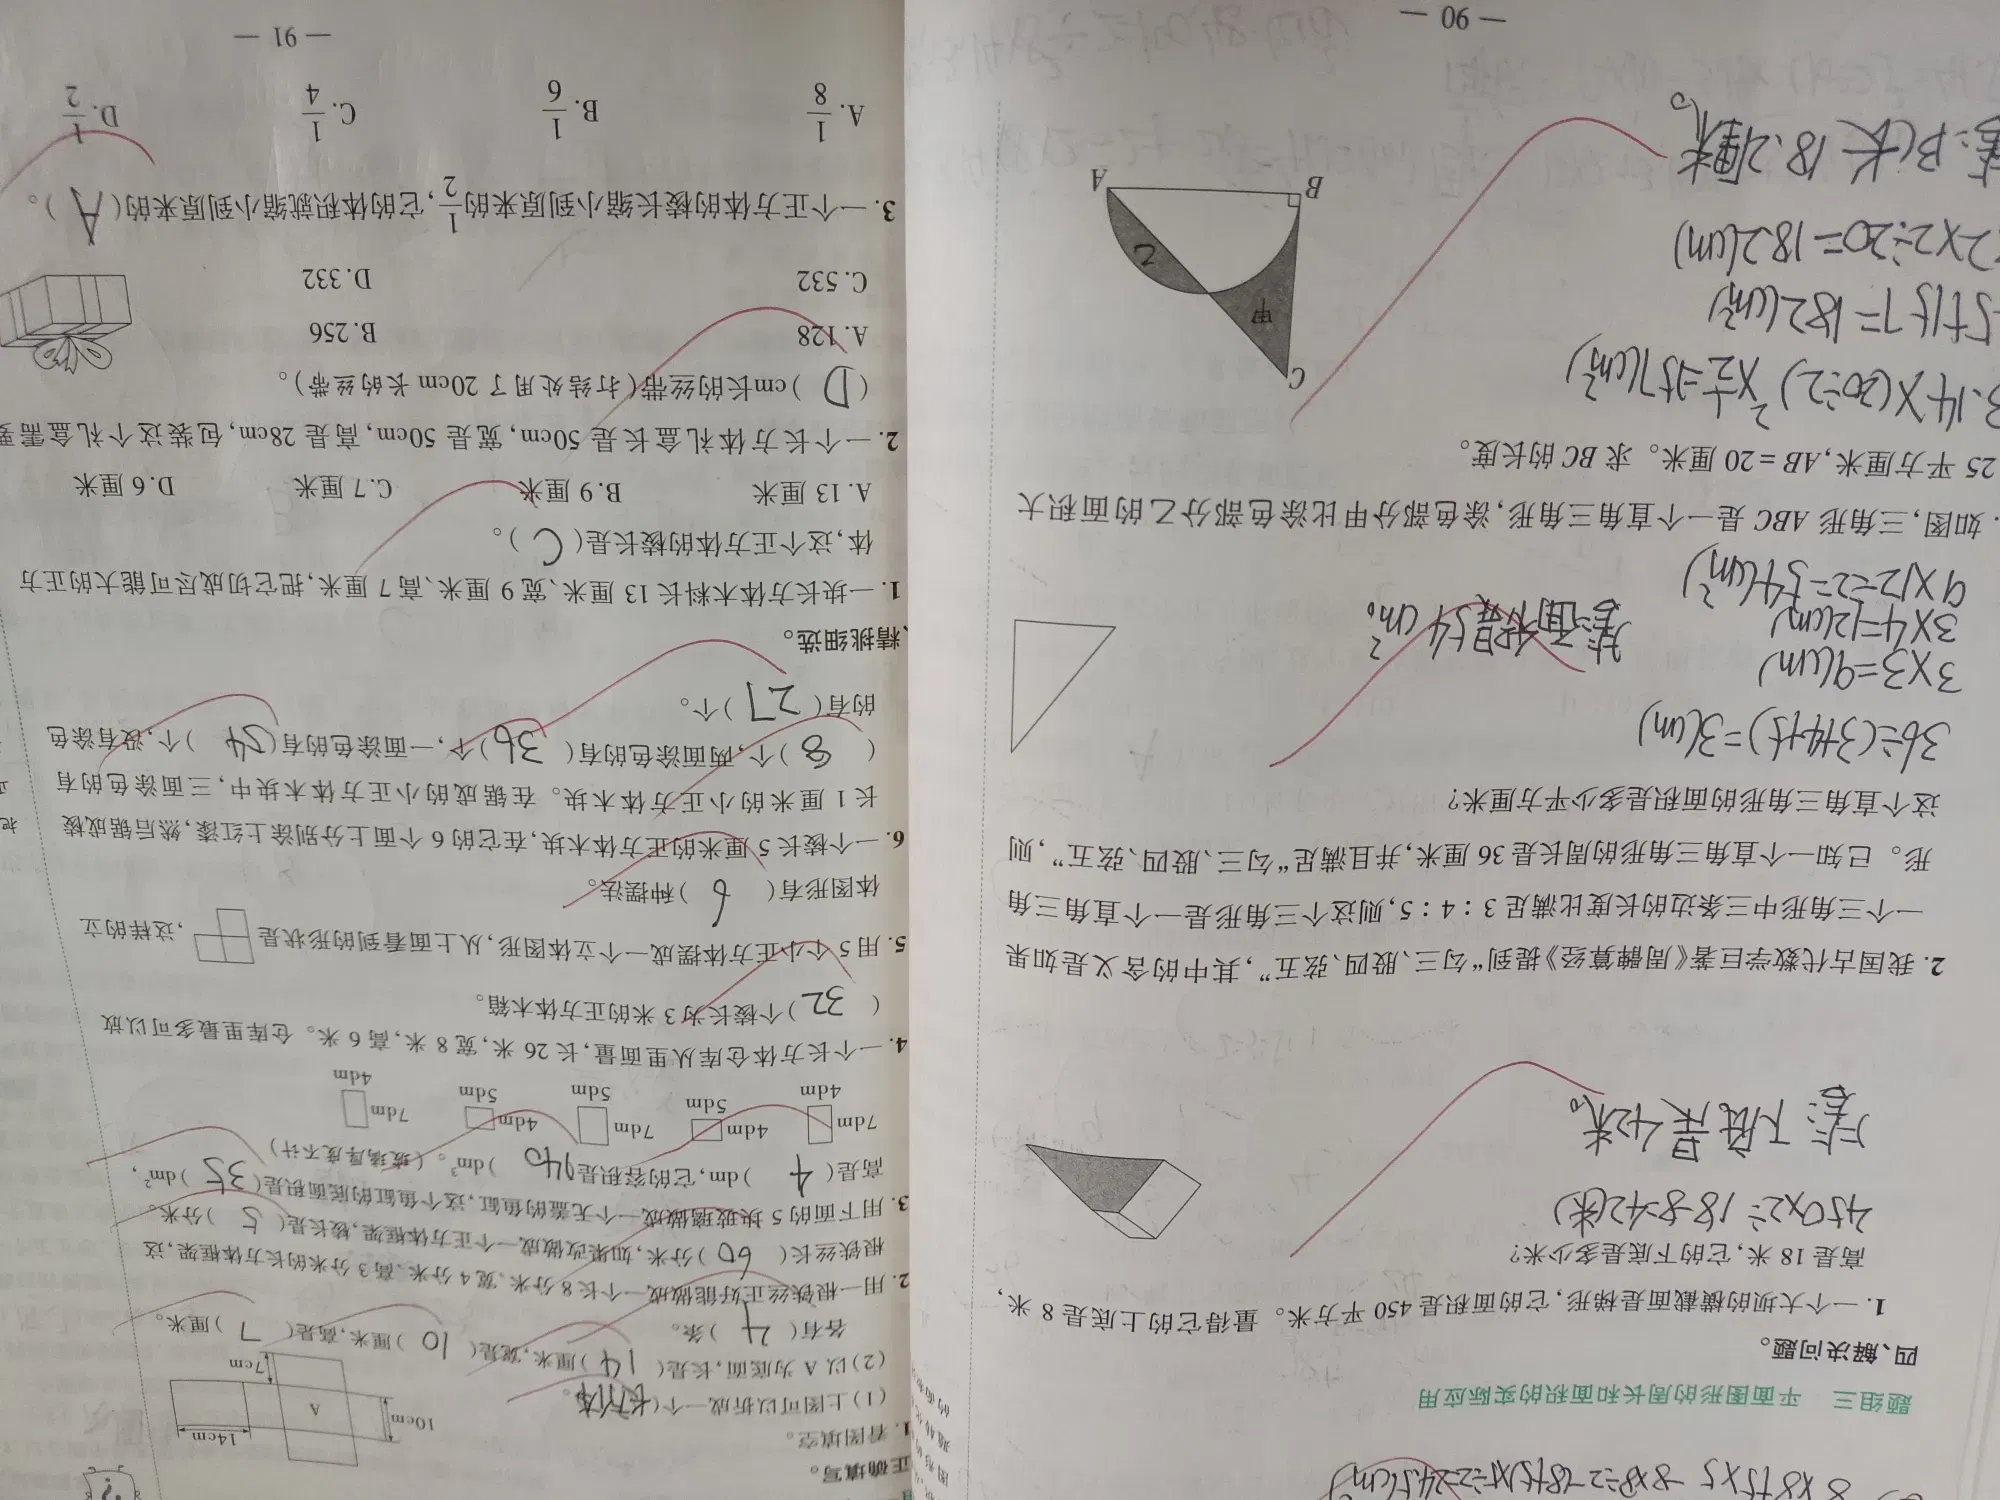 8×8+5×5-8×8÷2-(8+5)×5÷2=24.5(cm²)
题组三 平面图形的周长和面积的实际应用
四、解决问题。
1. 一个大坝的横截面是梯形,它的面积是 450 平方米。量得它的上底是 8 米,
高是 18 米,它的下底是多少米?
450×2÷18-8=42(米)
答:下底是42米。
2. 我国古代数学巨著《周髀算经》提到“勾三、股四、弦五”,其中的含义是如果
一个三角形中三条边的长度比满足 3∶4∶5,则这个三角形是一个直角三角
形。已知一个直角三角形的周长是 36 厘米,并且满足“勾三、股四、弦五”,则
这个直角三角形的面积是多少平方厘米?
36÷(3+4+5)=3(cm)
3×3=9(cm)
3×4=12(cm)
9×12÷2=54(cm²)
答:面积是54cm²。
如图,三角形 ABC 是一个直角三角形,涂色部分甲比涂色部分乙的面积大
25 平方厘米,AB=20 厘米。求 BC 的长度。
3.14×(20÷2)²×1/2=157(cm²)
25+157=182(cm²)
182×2÷20=18.2(cm)
答:BC长18.2厘米。
C
甲
乙
B
A
— 90 —
正确填写。
1. 看图填空。
(1)上图可以折成一个(长方体)。
(2)以 A 为底面,长是(14)厘米,宽是(10)厘米,高是(7)厘米。
各有(4)条。
10cm
14cm
A
7cm
2. 用一根铁丝正好能做成一个长 8 分米、宽 4 分米、高 3 分米的长方体框架,这
根铁丝长(60)分米,如果改做成一个正方体框架,棱长是(5)分米。
3. 用下面的 5 块玻璃做成一个无盖的鱼缸,这个鱼缸的底面积是(35)dm²,
高是(4)dm,它的容积是(140)dm³。(玻璃厚度不计)
7dm 4dm 4dm 5dm 7dm 5dm 4dm 5dm 7dm 4dm
4. 一个长方体仓库从里面量,长 26 米,宽 8 米,高 6 米。仓库里最多可以放
(32)个棱长为 3 米的正方体木箱。
5. 用 5 个小正方体摆成一个立体图形,从上面看到的形状是 ,这样的立
体图形有(6)种摆法。
6. 一个棱长 5 厘米的正方体木块,在它的 6 个面上分别涂上红漆,然后锯成棱
长 1 厘米的小正方体木块。在锯成的小正方体木块中,三面涂色的有
(8)个,两面涂色的有(36)个,一面涂色的有(54)个,没有涂色
的有(27)个。
精挑细选。
1. 一块长方体木料长 13 厘米、宽 9 厘米、高 7 厘米,把它切成尽可能大的正方
体,这个正方体的棱长是(C)。
A. 13 厘米 B. 9 厘米 C. 7 厘米 D. 6 厘米
2. 一个长方体礼盒长是 50cm,宽是 50cm,高是 28cm,包装这个礼盒需要
(D)cm 长的丝带(打结处用了 20cm 长的丝带)。
A. 128 B. 256
C. 532 D. 332
3. 一个正方体的棱长缩小到原来的1/2,它的体积就缩小到原来的(A)。
A. 1/8 B. 1/6 C. 1/4 D. 1/2
— 91 —